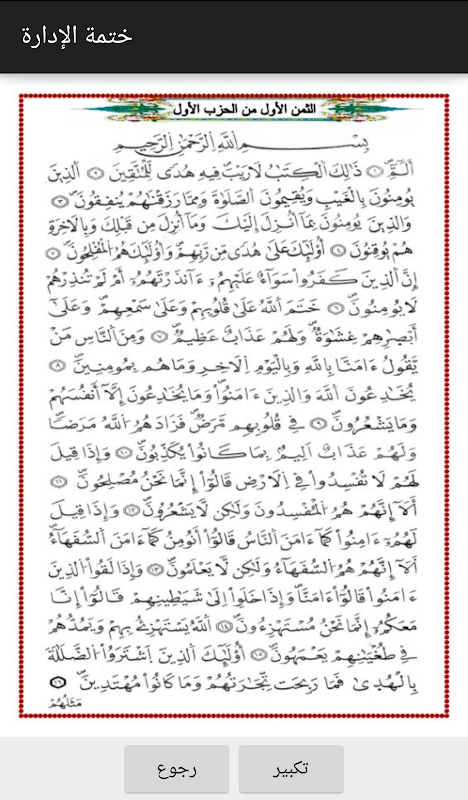 ختمة الإدارة
الثمن الأول من الحزب الأول
بِسْمِ اللَّهِ الرَّحْمَٰنِ الرَّحِيمِ
أَلَمِّ ۝١ ذَٰلِكَ ألْكِتَٰبُ لَا رَيْبَ فِيهِ هُدًى لِّلْمُتَّقِينَ ۝٢ ألَّذِينَ
يُومِنُونَ بِالْغَيْبِ وَيُقِيمُونَ ألصَّلَوٰةَ وَمِمَّا رَزَقْنَٰهُمْ يُنفِقُونَ ۝٣
وَالذِينَ يُومِنُونَ بِمَا أُنزِلَ إِلَيْكَ وَمَا أُنزِلَ مِن قَبْلِكَ وَبِالَاخِرَةِ
هُمْ يُوقِنُونَ ۝٤ أُوْلَٰئِكَ عَلَىٰ هُدًى مِّن رَّبِّهِمْ وَأُوْلَٰئِكَ هُمُ الْمُفْلِحُونَ ۝٥
إِنَّ ألذِينَ كَفَرُواْ سَوَآءٌ عَلَيْهِمُ ءَآنذَرْتَهُمُ أَمْ لَمْ تُنذِرْهُمْ
لَا يُومِنُونَ ۝٦ خَتَمَ أللَّهُ عَلَىٰ قُلُوبِهِمْ وَعَلَىٰ سَمْعِهِمْ وَعَلَىٰ
أَبْصَٰرِهِمْ غِشَٰوَةٌ وَلَهُمْ عَذَابٌ عَظِيمٌ ۝٧ وَمِنَ ألنَّاسِ مَنْ
يَّقُولُ ءَامَنَّا بِاللَّهِ وَبِالْيَوْمِ اِلَاخِرِ وَمَا هُم بِمُومِنِينَ ۝٨
يُخَٰدِعُونَ أللَّهَ وَالذِينَ ءَامَنُواْ وَمَا يُخَٰدِعُونَ إِلَّا أَنفُسَهُمْ
وَمَا يَشْعُرُونَ ۝٩ فِي قُلُوبِهِم مَّرَضٌ فَزَادَهُمُ أللَّهُ مَرَضًا
وَلَهُمْ عَذَابٌ اَلِيمٌ بِمَا كَانُواْ يُكَذِّبُونَ ۝١٠ وَإِذَا قِيلَ
لَهُمْ لَا تُفْسِدُواْ فِي اِلَارْضِ قَالُواْ إِنَّمَا نَحْنُ مُصْلِحُونَ ۝١١
أَلَا إِنَّهُمْ هُمُ الْمُفْسِدُونَ وَلَٰكِن لَّا يَشْعُرُونَ ۝١٢ وَإِذَا قِيلَ
لَهُمُ ءَامِنُواْ كَمَا ءَامَنَ ألنَّاسُ قَالُواْ أَنُومِنُ كَمَا ءَامَنَ ألسُّفَهَاءُ
أَلَا إِنَّهُمْ هُمُ السُّفَهَاءُ وَلَٰكِن لَّا يَعْلَمُونَ ۝١٣ وَإِذَا لَقُواْ الذِينَ
ءَامَنُواْ قَالُواْ ءَامَنَّا وَإِذَا خَلَوِاْ اِلَىٰ شَيَٰطِينِهِمْ قَالُواْ إِنَّا
مَعَكُمُ إِنَّمَا نَحْنُ مُسْتَهْزِءُونَ ۝١٤ أللَّهُ يَسْتَهْزِئُ بِهِمْ وَيَمُدُّهُمْ
فِي طُغْيَٰنِهِمْ يَعْمَهُونَ ۝١٥ أُوْلَٰئِكَ ألذِينَ اَشْتَرَوُاْ الضَّلَٰلَةَ
بِالْهُدَىٰ فَمَا رَبِحَت تِّجَٰرَتُهُمْ وَمَا كَانُواْ مُهْتَدِينَ ۝١٦
مَثَلُهُمْ
تكبير
رجوع